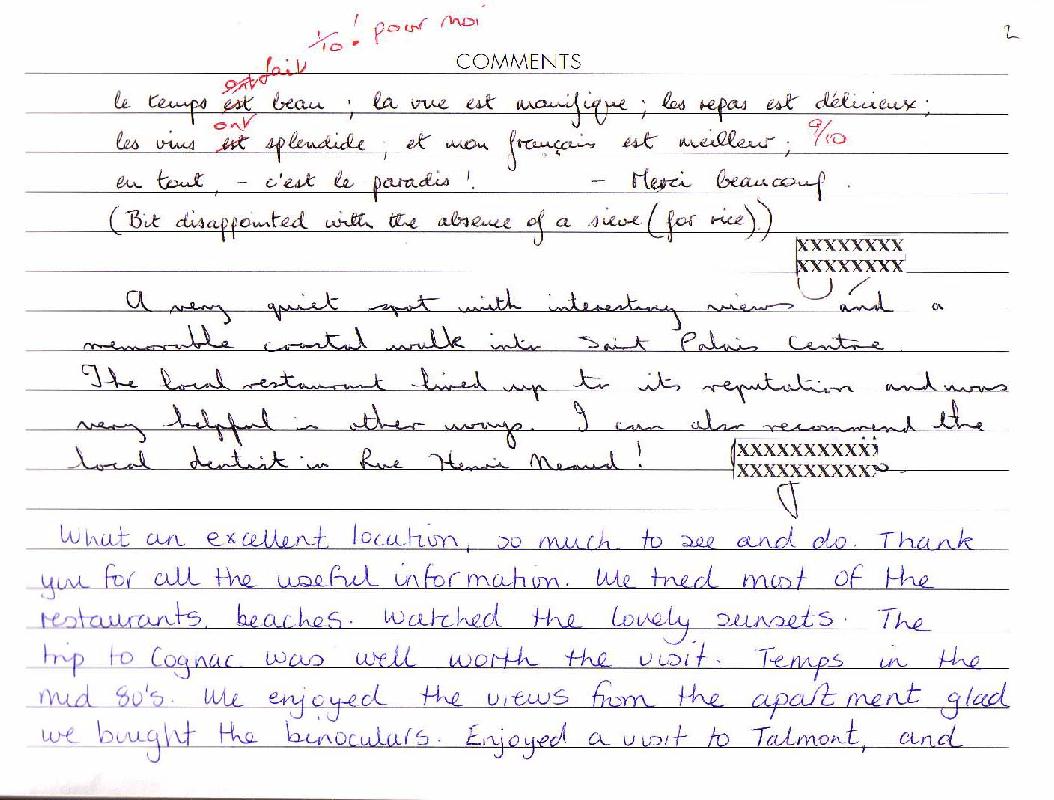 1/10! pour moi
2
COMMENTS
fait
le temps est beau ; la vue est manifique ; les repas est délicieux ;
ont
les vins est splendide ; et mon français est meilleur ; 9/10
en tout, - c'est le paradis ! - Merci beaucoup .
(Bit disappointed with the absence of a sieve (for rice).)
XXXXXXXX
XXXXXXXX
A very quiet spot with interesting views and a
memorable coastal walk into Saint Palais Centre
The local restaurant lived up to its reputation and was
very helpful in other ways. I can also recommend the
local dentist in Rue Henri !
XXXXXXXXXX
XXXXXXXXXX
What an excellent location, so much to see and do. Thank
you for all the useful information. We tried most of the
restaurants, beaches. Watched the lovely sunsets. The
trip to Cognac was well worth the visit. Temps in the
mid 80's. We enjoyed the views from the apartment glad
we bought the binoculars. Enjoyed a visit to Talmont, and